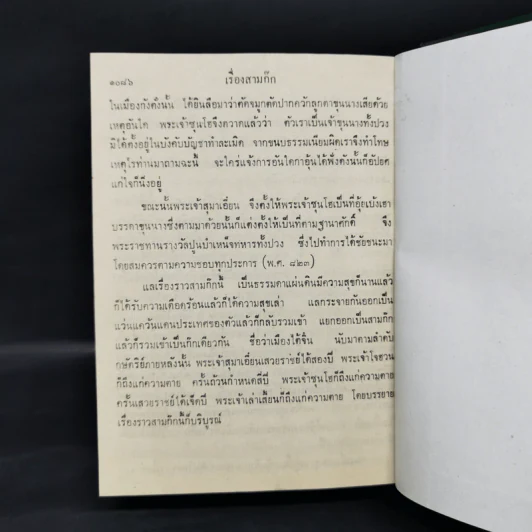 ๑๐๘๖ เรื่องสามก๊ก
ในเมืองกังตั๋งนั้น ได้ยินลือมาว่าตัดจมูกตัดปากควักลูกตาขุนนางเสียด้วย
เหตุอันใด พระเจ้าซุนโฮจึงตวาดแล้วว่า ตัวเราเป็นเจ้าขุนนางทั้งปวง
มิได้ตั้งอยู่ในบังคับบัญชาทำละเมิด จากขนบธรรมเนียมผิดเราจึงทำโทษ
เหตุไรท่านมาถามฉะนี้ จะใคร่แจ้งการอันใด กาอุ้นได้ฟังดังนั้นก็อัปอด
แก่ใจก็นิ่งอยู่
ขณะนั้นพระเจ้าสุมาเอี๋ยน จึงตั้งให้พระเจ้าซุนโฮเป็นที่อุ้ยเบ้งเฮา
บรรดาขุนนางซึ่งตามมาด้วยนั้นก็แต่งตั้งให้เป็นที่ตามฐานาศักดิ์ จึง
พระราชทานรางวัลปูนบำเหน็จทหารทั้งปวง ซึ่งไปทำการได้ชัยชนะมา
โดยสมควรตามความชอบทุกประการ (พ.ศ. ๘๒๓)
แลเรื่องราวสามก๊กนี้ เป็นธรรมดาแผ่นดินมีความสุขก็นานแล้ว
ก็ได้รับความเดือดร้อนแล้วก็ได้ความสุขเล่า แลกระจายกันออกเป็น
แว่นแคว้นแดนประเทศของตัวแล้วก็กลับรวมเข้า แยกออกเป็นสามก๊ก
แล้วก็รวมเข้าเป็นก๊กเดียวกัน ชื่อว่าเมืองไต้จิ้น นับมาตามลำดับ
กษัตริย์ภายหลังนั้น พระเจ้าสุมาเอี๋ยนเสวยราชย์ได้สองปี พระเจ้าโจฮวน
ก็ถึงแก่ความตาย ครั้นถ้วนกำหนดสี่ปี พระเจ้าซุนโฮก็ถึงแก่ความตาย
ครั้นเสวยราชย์ได้เจ็ดปี พระเจ้าเล่าเสี้ยนก็ถึงแก่ความตาย โดยบรรยาย
เรื่องราวสามก๊กนี้ก็บริบูรณ์